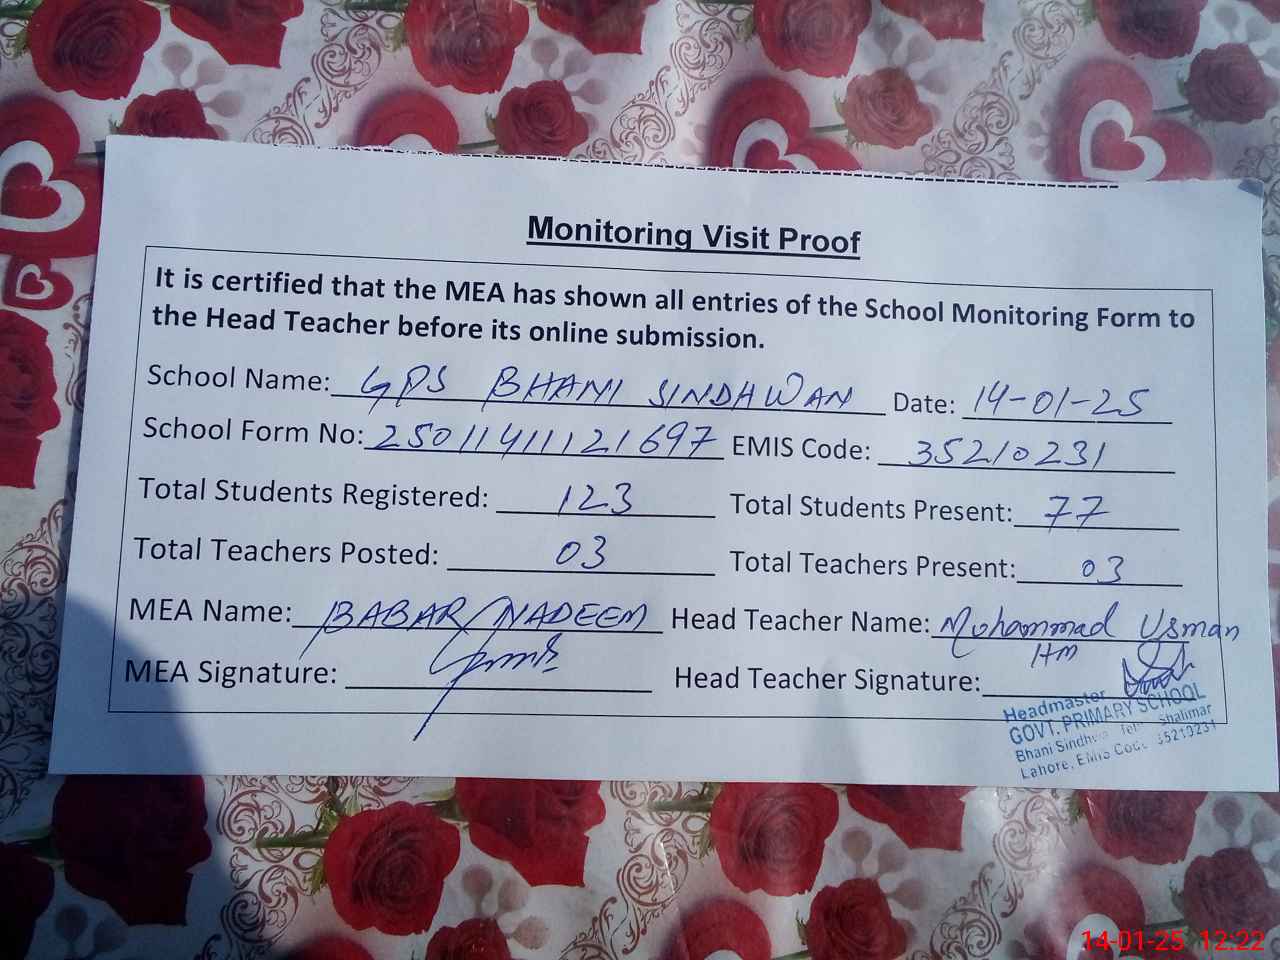 Monitoring Visit Proof
It is certified that the MEA has shown all entries of the School Monitoring Form to
the Head Teacher before its online submission.
School Name: GPS BHANI SINDHWAN Date: 14-01-25
School Form No: 25011411121697 EMIS Code: 35210231
Total Students Registered: 123 Total Students Present: 77
Total Teachers Posted: 03 Total Teachers Present: 03
MEA Name: BABAR NADEEM Head Teacher Name: Mohammad Usman
HM
MEA Signature: Head Teacher Signature:
Headmaster
GOVT. PRIMARY SCHOOL
Bhani Sindhwan Shalimar
Lahore, EMIS Code 35210231
14-01-25 12:22